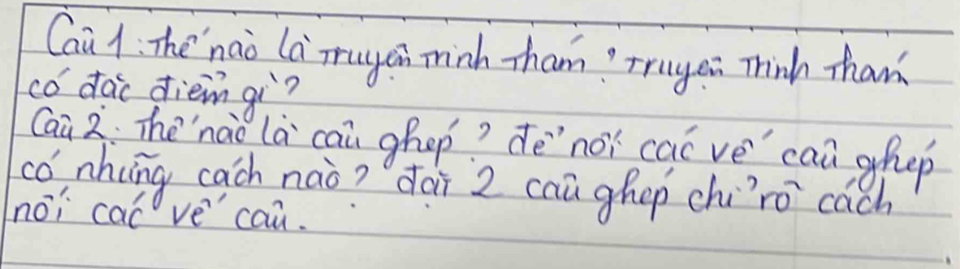 Câu 1: Thế nào là truyện trinh thám? Truyện trinh thám
có đặc điểm gì?
Câu 2: Thế nào là câu ghép? để nối các vế câu ghép
có những cách nào? đặt 2 câu ghép chỉ rõ cách
nối các vế câu.